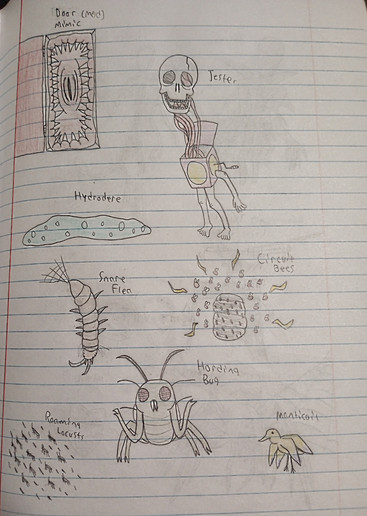 Door (mod)
mimic
Jester
Hydrodere
Circuit
Bees
Snare
Flea
Hording
Bug
Roaming
Locusts
Manticoil